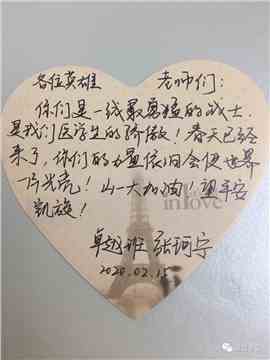 各位英雄 老师们：
你们是一线最勇猛的战士
是我们医学生的骄傲！春天已经
来了，你们的力量依旧会使世界
一片光亮！山一大加油！望平安
凯旋！
in love
卓越班 张珂宁
2020.02.15